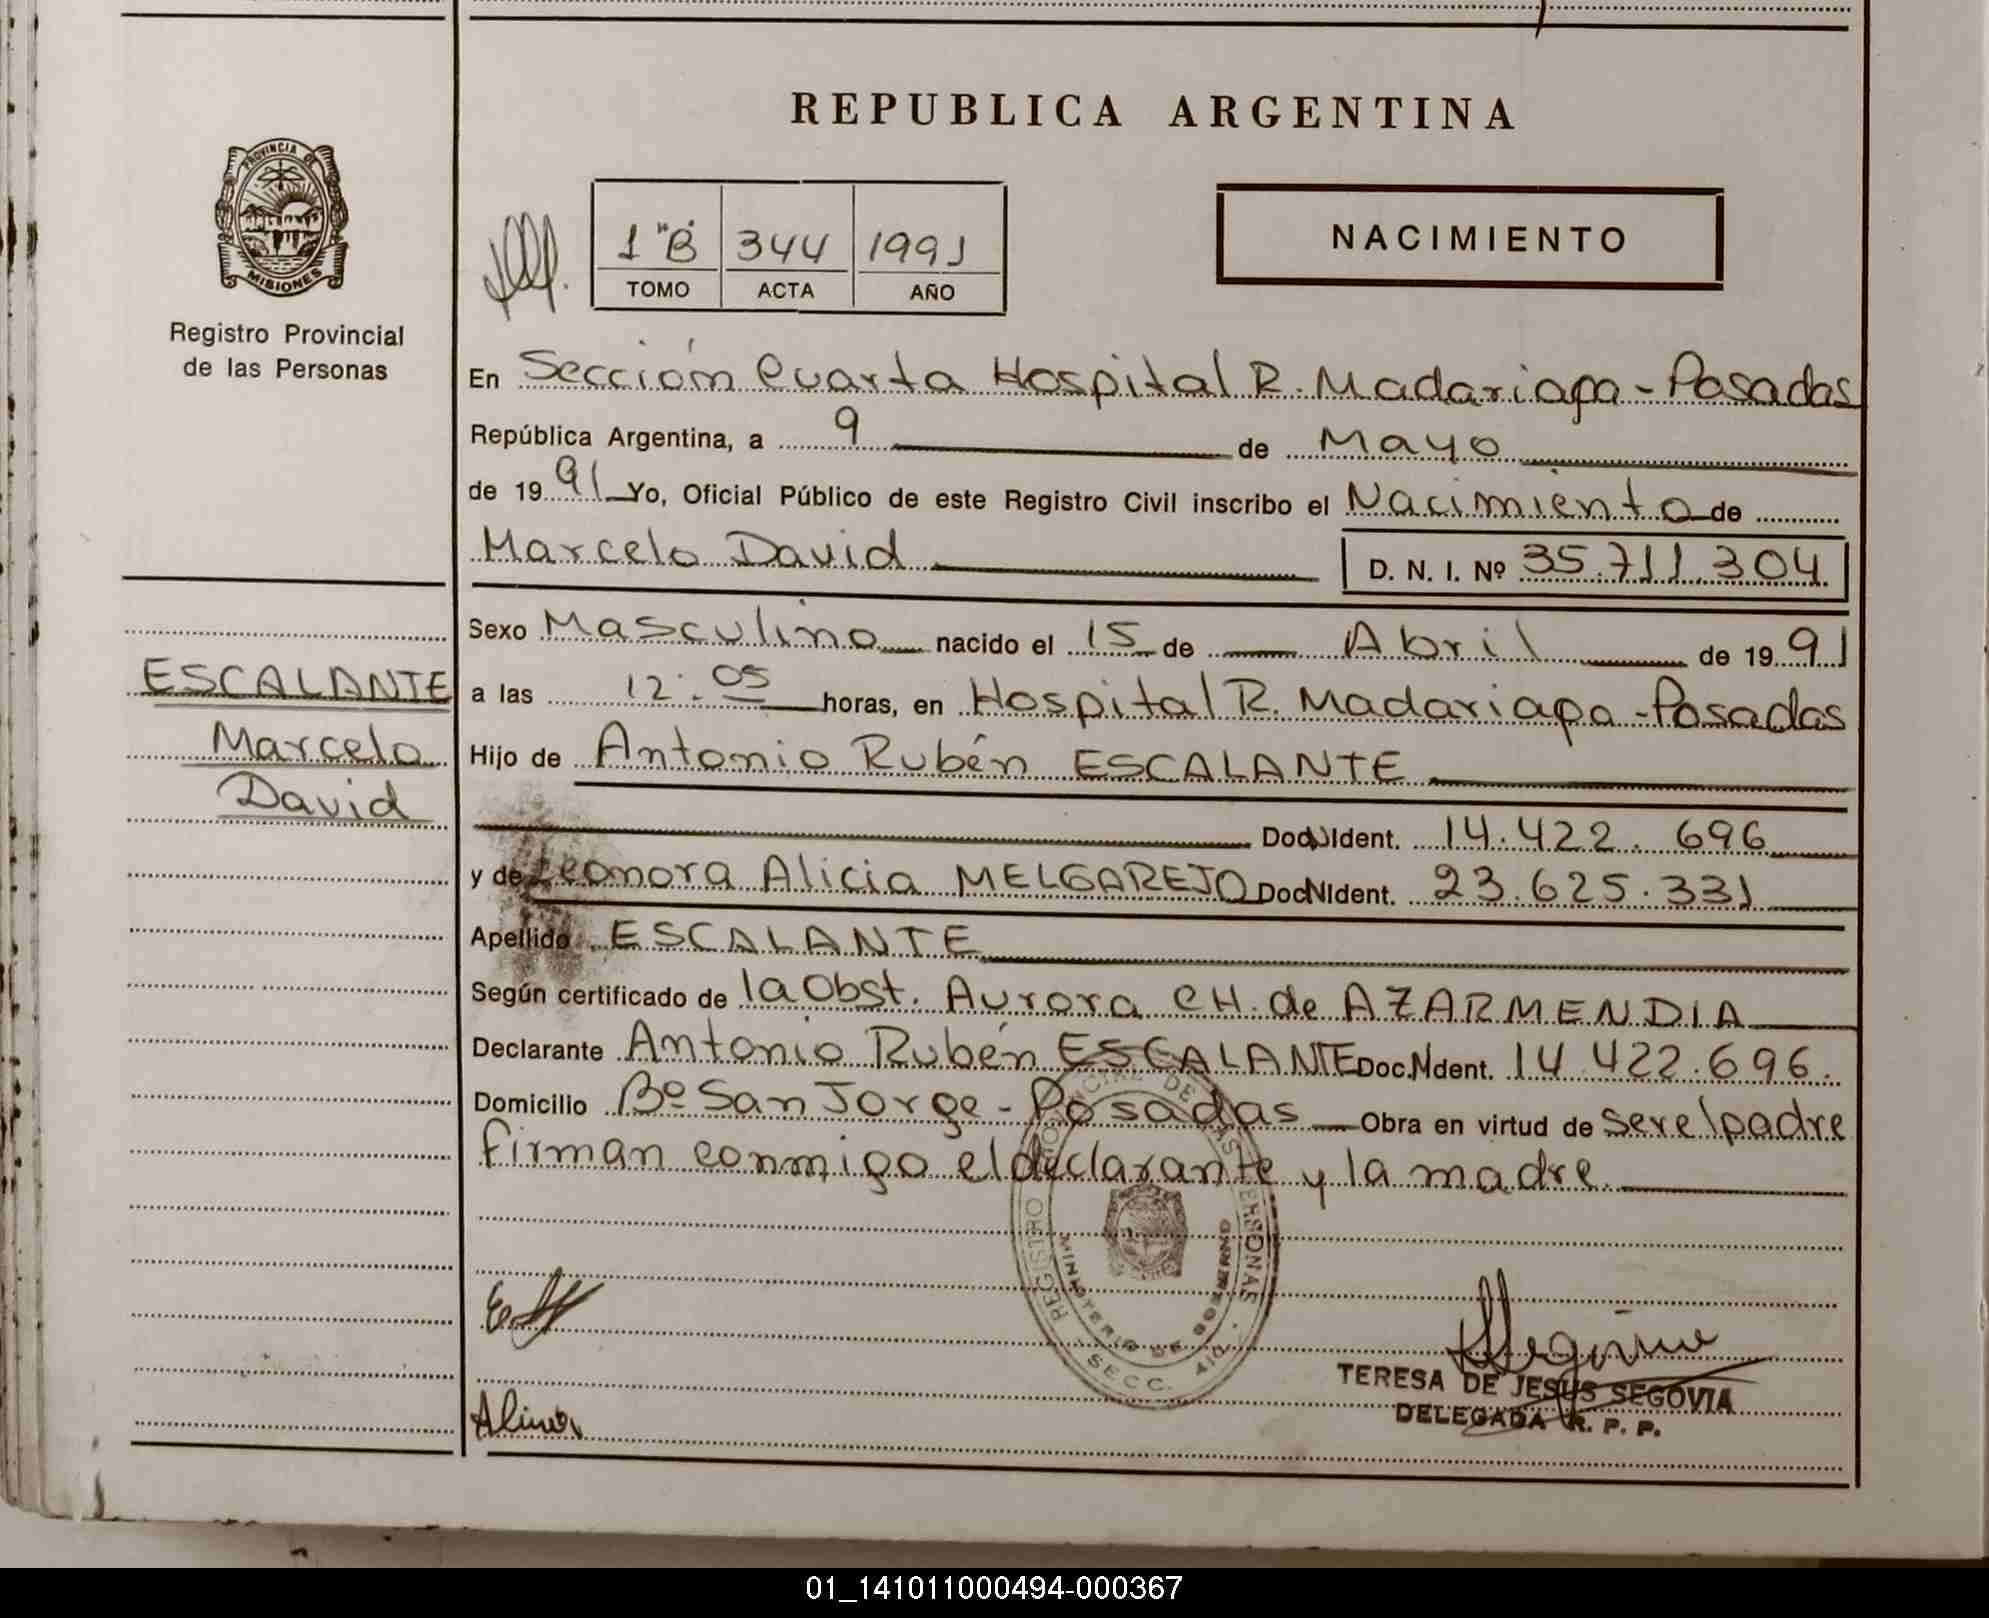 REPUBLICA ARGENTINA
PROVINCIA DE
MISIONES
Registro Provincial
de las Personas
1 "B"
344
1991
TOMO
ACTA
AÑO
NACIMIENTO
En Sección Cuarta Hospital R. Madariaga - Posadas
República Argentina, a 9 de Mayo
de 1991 Yo, Oficial Público de este Registro Civil inscribo el Nacimiento de
Marcelo David
D. N. I. Nº 35.711.304
Sexo Masculino nacido el 15 de Abril de 1991
a las 12:05 horas, en Hospital R. Madariaga - Posadas
Hijo de Antonio Rubén ESCALANTE
Doc. N Ident. 14.422.696
y de Leonora Alicia MELGAREJO Doc N Ident. 23.625.331
Apellido ESCALANTE
Según certificado de la Obst. Aurora CH. de AZARMENDIA
Declarante Antonio Rubén ESCALANTE Doc. N Ident. 14.422.696.
Domicilio Bº San Jorge - Posadas Obra en virtud de ser el padre
firman conmigo el declarante y la madre
ESCALANTE
Marcelo
David
REGISTRO PROVINCIAL DE LAS PERSONAS
MINISTERIO DE GOBIERNO
SECC. 4ta.
TERESA DE JESUS SEGOVIA
DELEGADA R. P. P.
01_141011000494-000367